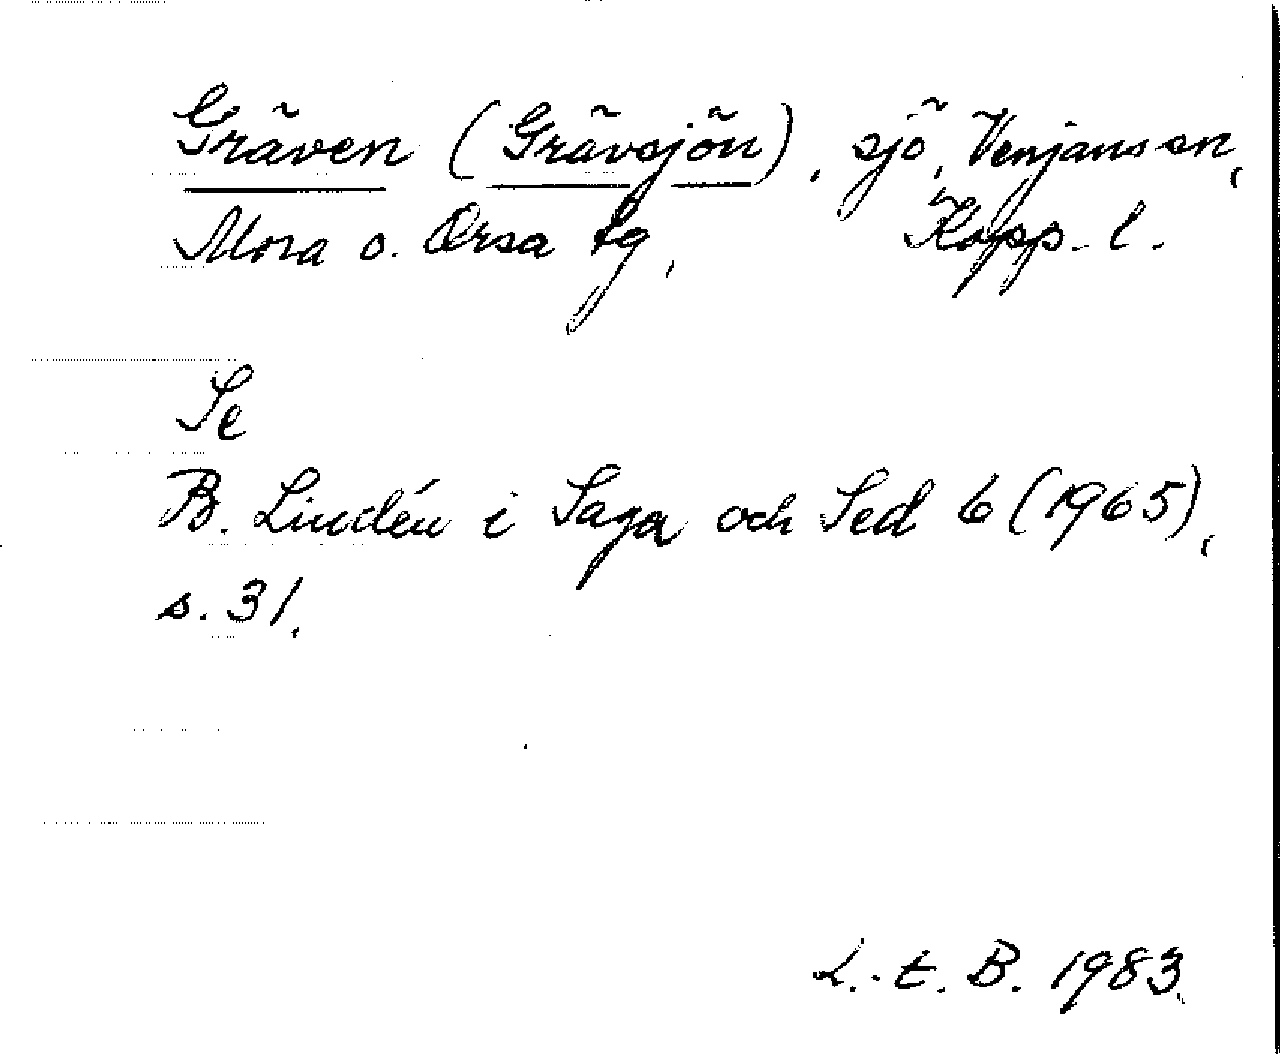 Gräven (Grävsjön), sjö, Venjans sn,
Mora o. Orsa tg, Kopp. l.
Se
B. Lindén i Saga och Sed 6 (1965),
s. 31.
L. t. B. 1983.